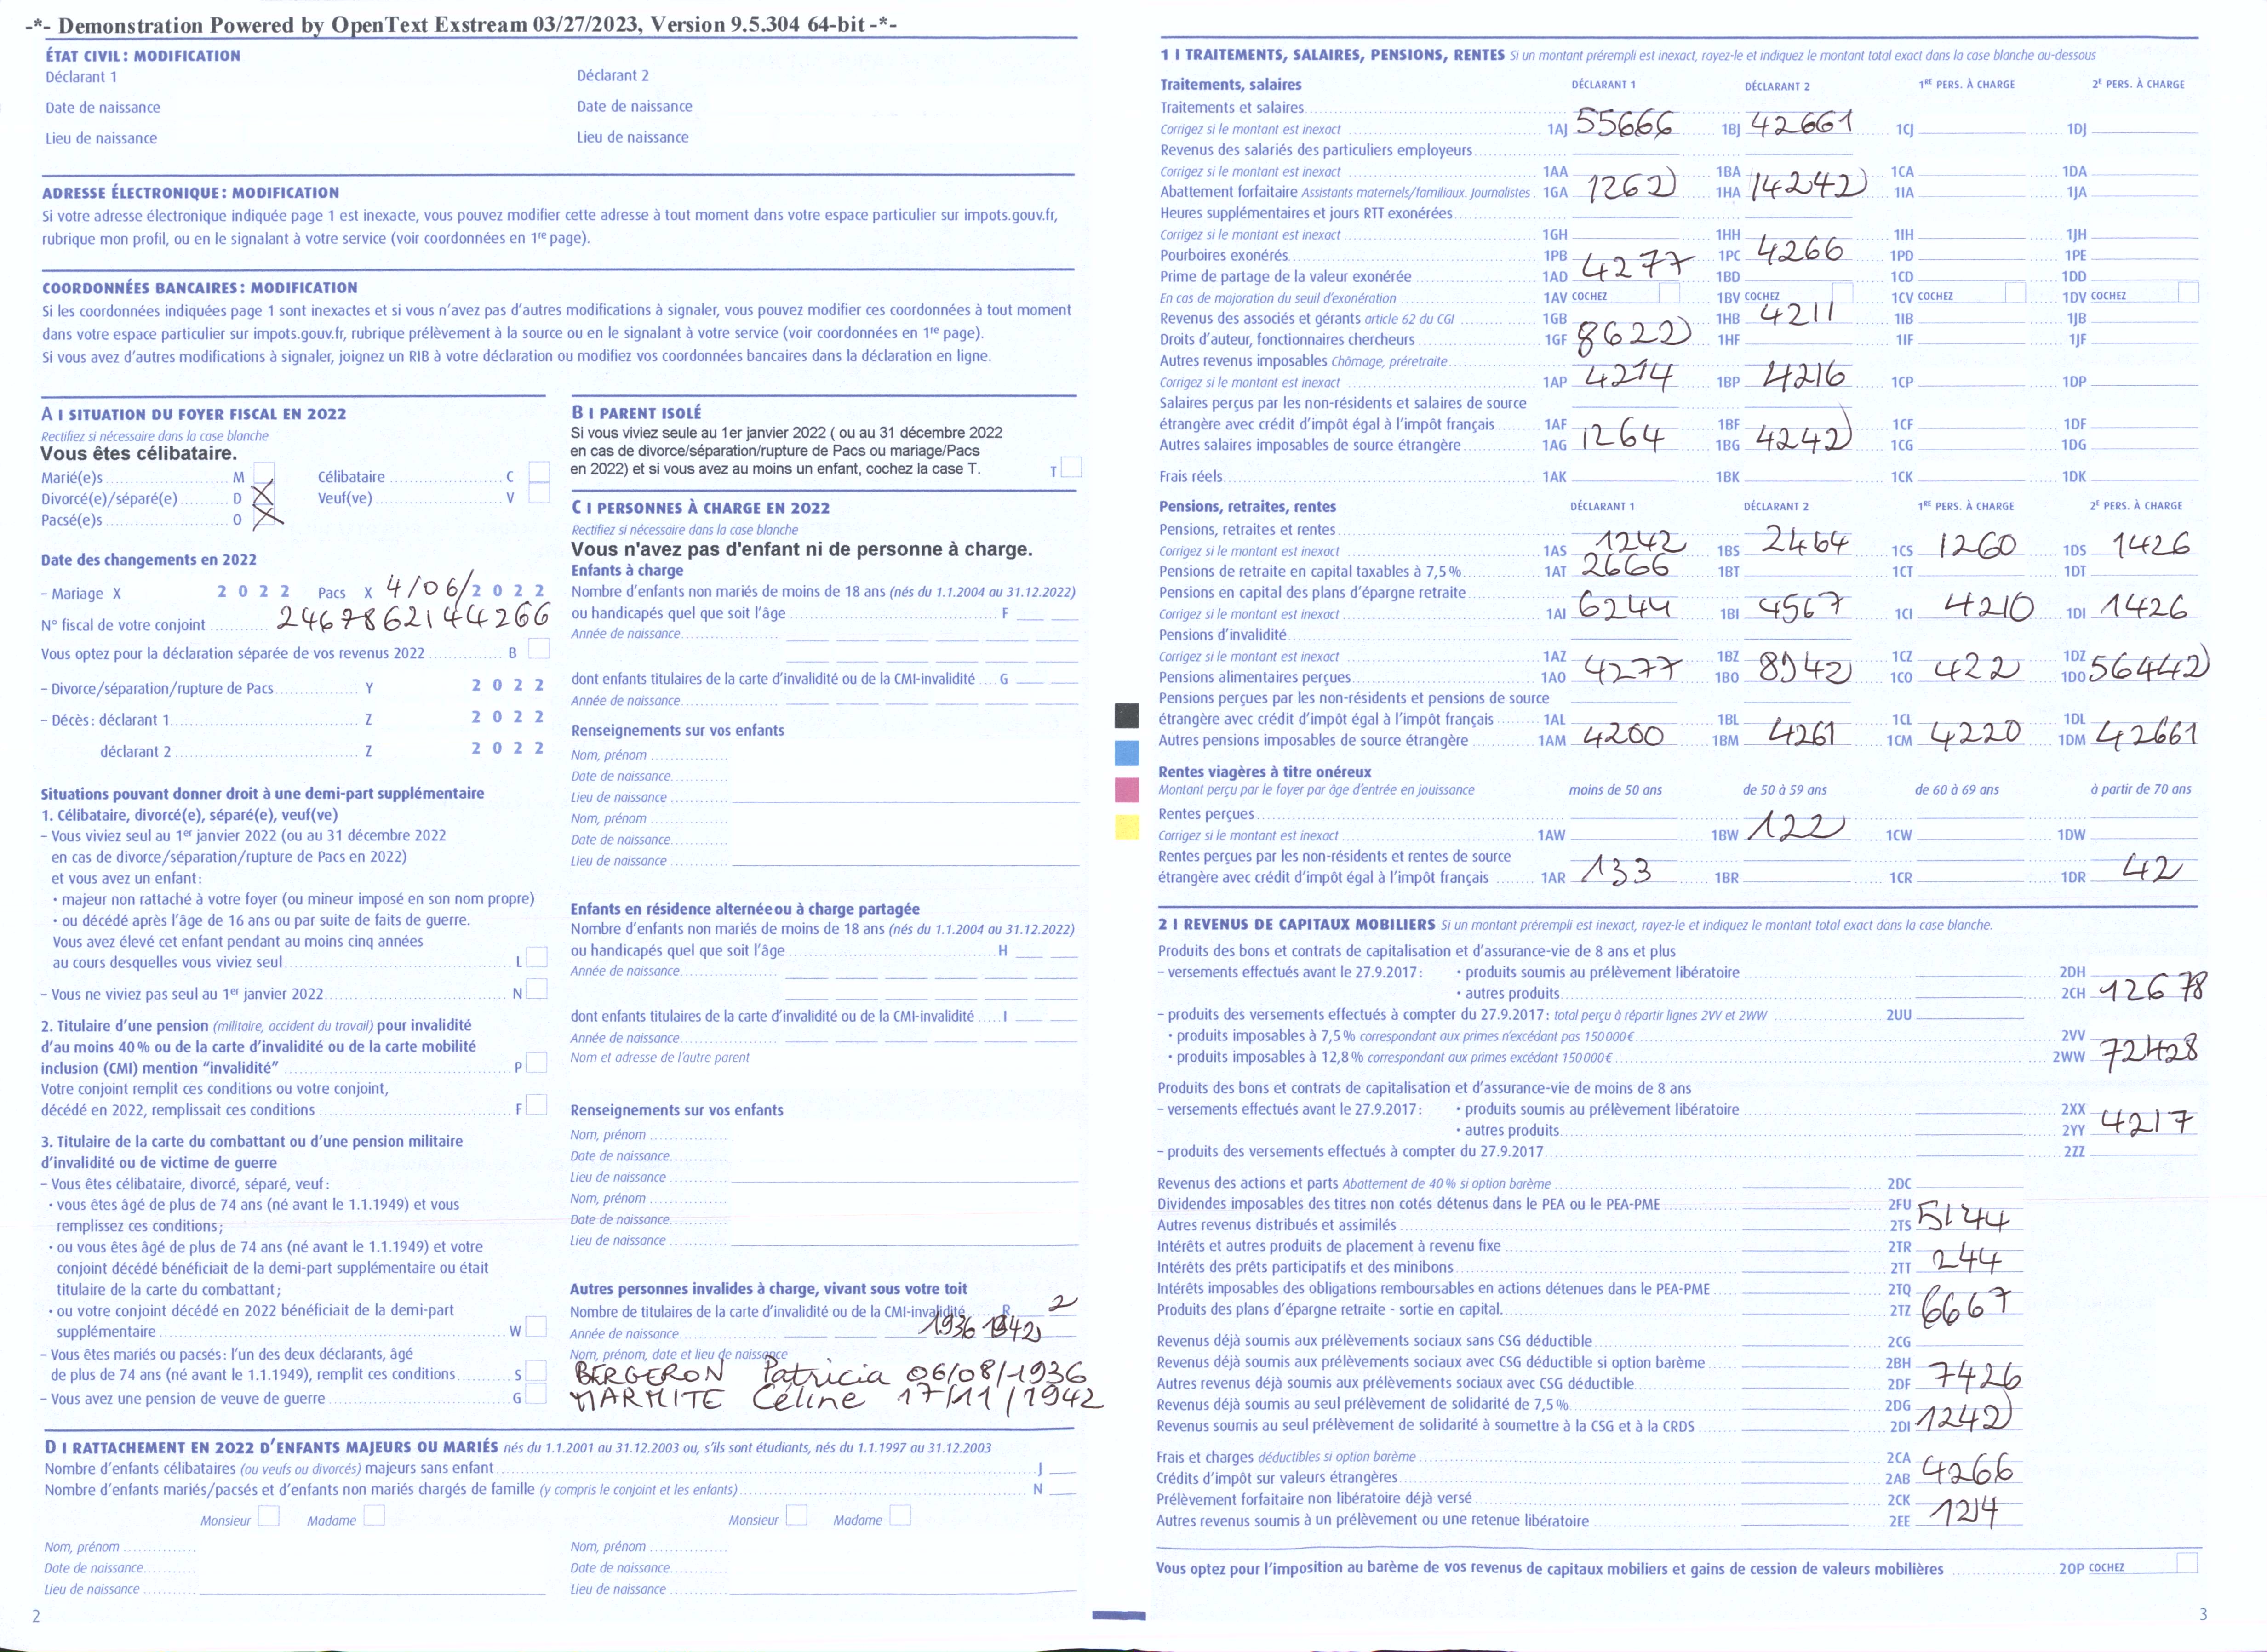 -*- Demonstration Powered by OpenText Exstream 03/27/2023, Version 9.5.304 64-bit -*-
ÉTAT CIVIL : MODIFICATION
Déclarant 1 Déclarant 2
Date de naissance Date de naissance
Lieu de naissance Lieu de naissance
ADRESSE ÉLECTRONIQUE : MODIFICATION
Si votre adresse électronique indiquée page 1 est inexacte, vous pouvez modifier cette adresse à tout moment dans votre espace particulier sur impots.gouv.fr,
rubrique mon profil, ou en le signalant à votre service (voir coordonnées en 1re page).
COORDONNÉES BANCAIRES : MODIFICATION
Si les coordonnées indiquées page 1 sont inexactes et si vous n'avez pas d'autres modifications à signaler, vous pouvez modifier ces coordonnées à tout moment
dans votre espace particulier sur impots.gouv.fr, rubrique prélèvement à la source ou en le signalant à votre service (voir coordonnées en 1re page).
Si vous avez d'autres modifications à signaler, joignez un RIB à votre déclaration ou modifiez vos coordonnées bancaires dans la déclaration en ligne.
A I SITUATION DU FOYER FISCAL EN 2022
Rectifiez si nécessaire dans la case blanche
Vous êtes célibataire.
Marié(e)s M Célibataire C
Divorcé(e)/séparé(e) D X Veuf(ve) V
Pacsé(e)s O X
Date des changements en 2022
- Mariage X 2 0 2 2 Pacs X 4/06/2 0 2 2
N° fiscal de votre conjoint 2467862144266
Vous optez pour la déclaration séparée de vos revenus 2022 B
- Divorce/séparation/rupture de Pacs Y 2 0 2 2
- Décès : déclarant 1 Z 2 0 2 2
déclarant 2 Z 2 0 2 2
Situations pouvant donner droit à une demi-part supplémentaire
1. Célibataire, divorcé(e), séparé(e), veuf(ve)
- Vous viviez seul au 1er janvier 2022 (ou au 31 décembre 2022
en cas de divorce/séparation/rupture de Pacs en 2022)
et vous avez un enfant :
• majeur non rattaché à votre foyer (ou mineur imposé en son nom propre)
• ou décédé après l'âge de 16 ans ou par suite de faits de guerre.
Vous avez élevé cet enfant pendant au moins cinq années
au cours desquelles vous viviez seul L
- Vous ne viviez pas seul au 1er janvier 2022 N
2. Titulaire d'une pension (militaire, accident du travail) pour invalidité
d'au moins 40 % ou de la carte d'invalidité ou de la carte mobilité
inclusion (CMI) mention "invalidité" P
Votre conjoint remplit ces conditions ou votre conjoint,
décédé en 2022, remplissait ces conditions F
3. Titulaire de la carte du combattant ou d'une pension militaire
d'invalidité ou de victime de guerre
- Vous êtes célibataire, divorcé, séparé, veuf :
• vous êtes âgé de plus de 74 ans (né avant le 1.1.1949) et vous
remplissez ces conditions ;
• ou vous êtes âgé de plus de 74 ans (né avant le 1.1.1949) et votre
conjoint décédé bénéficiait de la demi-part supplémentaire ou était
titulaire de la carte du combattant ;
• ou votre conjoint décédé en 2022 bénéficiait de la demi-part
supplémentaire W
- Vous êtes mariés ou pacsés : l'un des deux déclarants, âgé
de plus de 74 ans (né avant le 1.1.1949), remplit ces conditions S
- Vous avez une pension de veuve de guerre G
B I PARENT ISOLÉ
Si vous viviez seule au 1er janvier 2022 ( ou au 31 décembre 2022
en cas de divorce/séparation/rupture de Pacs ou mariage/Pacs
en 2022) et si vous avez au moins un enfant, cochez la case T. T
C I PERSONNES À CHARGE EN 2022
Rectifiez si nécessaire dans la case blanche
Vous n'avez pas d'enfant ni de personne à charge.
Enfants à charge
Nombre d'enfants non mariés de moins de 18 ans (nés du 1.1.2004 au 31.12.2022)
ou handicapés quel que soit l'âge F
Année de naissance
dont enfants titulaires de la carte d'invalidité ou de la CMI-invalidité G
Année de naissance
Renseignements sur vos enfants
Nom, prénom
Date de naissance
Lieu de naissance
Nom, prénom
Date de naissance
Lieu de naissance
Enfants en résidence alternée ou à charge partagée
Nombre d'enfants non mariés de moins de 18 ans (nés du 1.1.2004 au 31.12.2022)
ou handicapés quel que soit l'âge H
Année de naissance
dont enfants titulaires de la carte d'invalidité ou de la CMI-invalidité I
Année de naissance
Nom et adresse de l'autre parent
Renseignements sur vos enfants
Nom, prénom
Date de naissance
Lieu de naissance
Nom, prénom
Date de naissance
Lieu de naissance
Autres personnes invalides à charge, vivant sous votre toit
Nombre de titulaires de la carte d'invalidité ou de la CMI-invalidité R 2
Année de naissance 1936 1942
Nom, prénom, date et lieu de naissance
BERGERON Patricia 06/08/1936
MARMITE Céline 17/11/1942
D I RATTACHEMENT EN 2022 D'ENFANTS MAJEURS OU MARIÉS nés du 1.1.2001 au 31.12.2003 ou, s'ils sont étudiants, nés du 1.1.1997 au 31.12.2003
Nombre d'enfants célibataires (ou veufs ou divorcés) majeurs sans enfant J
Nombre d'enfants mariés/pacsés et d'enfants non mariés chargés de famille (y compris le conjoint et les enfants) N
Monsieur Madame Monsieur Madame
Nom, prénom Nom, prénom
Date de naissance Date de naissance
Lieu de naissance Lieu de naissance
2
1 I TRAITEMENTS, SALAIRES, PENSIONS, RENTES Si un montant prérempli est inexact, rayez-le et indiquez le montant total exact dans la case blanche au-dessous
Traitements, salaires DÉCLARANT 1 DÉCLARANT 2 1RE PERS. À CHARGE 2E PERS. À CHARGE
Traitements et salaires
Corrigez si le montant est inexact 1AJ 55666 1BJ 42661 1CJ 1DJ
Revenus des salariés des particuliers employeurs
Corrigez si le montant est inexact 1AA 1BA 1CA 1DA
Abattement forfaitaire Assistants maternels/familiaux. Journalistes 1GA 1262 1HA 14242 1IA 1JA
Heures supplémentaires et jours RTT exonérées
Corrigez si le montant est inexact 1GH 1HH 1IH 1JH
Pourboires exonérés 1PB 1PC 4266 1PD 1PE
Prime de partage de la valeur exonérée 1AD 4277 1BD 1CD 1DD
En cas de majoration du seuil d'exonération 1AV COCHEZ 1BV COCHEZ 1CV COCHEZ 1DV COCHEZ
Revenus des associés et gérants article 62 du CGI 1GB 1HB 4211 1IB 1JB
Droits d'auteur, fonctionnaires chercheurs 1GF 8622 1HF 1IF 1JF
Autres revenus imposables Chômage, préretraite
Corrigez si le montant est inexact 1AP 4214 1BP 4216 1CP 1DP
Salaires perçus par les non-résidents et salaires de source
étrangère avec crédit d'impôt égal à l'impôt français 1AF 1BF 1CF 1DF
Autres salaires imposables de source étrangère 1AG 1264 1BG 4242 1CG 1DG
Frais réels 1AK 1BK 1CK 1DK
Pensions, retraites, rentes DÉCLARANT 1 DÉCLARANT 2 1RE PERS. À CHARGE 2E PERS. À CHARGE
Pensions, retraites et rentes
Corrigez si le montant est inexact 1AS 1242 1BS 2464 1CS 1260 1DS 1426
Pensions de retraite en capital taxables à 7,5 % 1AT 2666 1BT 1CT 1DT
Pensions en capital des plans d'épargne retraite
Corrigez si le montant est inexact 1AI 6244 1BI 4567 1CI 4210 1DI 1426
Pensions d'invalidité
Corrigez si le montant est inexact 1AZ 1BZ 1CZ 1DZ
Pensions alimentaires perçues 1AO 4277 1BO 8942 1CO 422 1DO 56442
Pensions perçues par les non-résidents et pensions de source
étrangère avec crédit d'impôt égal à l'impôt français 1AL 1BL 1CL 1DL
Autres pensions imposables de source étrangère 1AM 4200 1BM 4261 1CM 4220 1DM 42661
Rentes viagères à titre onéreux
Montant perçu par le foyer par âge d'entrée en jouissance moins de 50 ans de 50 à 59 ans de 60 à 69 ans à partir de 70 ans
Rentes perçues
Corrigez si le montant est inexact 1AW 1BW 122 1CW 1DW
Rentes perçues par les non-résidents et rentes de source
étrangère avec crédit d'impôt égal à l'impôt français 1AR 133 1BR 1CR 1DR 42
2 I REVENUS DE CAPITAUX MOBILIERS Si un montant prérempli est inexact, rayez-le et indiquez le montant total exact dans la case blanche.
Produits des bons et contrats de capitalisation et d'assurance-vie de 8 ans et plus
- versements effectués avant le 27.9.2017 : • produits soumis au prélèvement libératoire 2DH
• autres produits 2CH 12678
- produits des versements effectués à compter du 27.9.2017 : total perçu à répartir lignes 2VV et 2WW 2UU
• produits imposables à 7,5 % correspondant aux primes n'excédant pas 150 000 € 2VV
• produits imposables à 12,8 % correspondant aux primes excédant 150 000 € 2WW 72428
Produits des bons et contrats de capitalisation et d'assurance-vie de moins de 8 ans
- versements effectués avant le 27.9.2017 : • produits soumis au prélèvement libératoire 2XX
• autres produits 2YY 4217
- produits des versements effectués à compter du 27.9.2017 2ZZ
Revenus des actions et parts Abattement de 40 % si option barème 2DC
Dividendes imposables des titres non cotés détenus dans le PEA ou le PEA-PME 2FU
Autres revenus distribués et assimilés 2TS 5144
Intérêts et autres produits de placement à revenu fixe 2TR
Intérêts des prêts participatifs et des minibons 2TT 244
Intérêts imposables des obligations remboursables en actions détenues dans le PEA-PME 2TQ
Produits des plans d'épargne retraite - sortie en capital. 2TZ 6667
Revenus déjà soumis aux prélèvements sociaux sans CSG déductible 2CG
Revenus déjà soumis aux prélèvements sociaux avec CSG déductible si option barème 2BH
Autres revenus déjà soumis aux prélèvements sociaux avec CSG déductible 2DF 7426
Revenus déjà soumis au seul prélèvement de solidarité de 7,5 % 2DG
Revenus soumis au seul prélèvement de solidarité à soumettre à la CSG et à la CRDS 2DI 1242
Frais et charges déductibles si option barème 2CA
Crédits d'impôt sur valeurs étrangères 2AB 4266
Prélèvement forfaitaire non libératoire déjà versé 2CK
Autres revenus soumis à un prélèvement ou une retenue libératoire 2EE 1214
Vous optez pour l'imposition au barème de vos revenus de capitaux mobiliers et gains de cession de valeurs mobilières 2OP COCHEZ
3